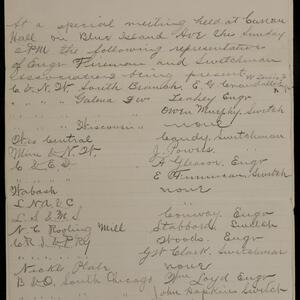 At a special meeting held at Curran
Hall on Blue Island Ave this Sunday
2 PM the following representatives
of Engr Fireman and Switchman
Associations being present
C & N. W. South Branch E. G.
" " " Galena Div Leahey Engr
Owen Murphy Switch
" " " Wisconsin " none
Wis Central Canidy, Switchman
Minn & N. W. J. Powers
C & E. I. A Gleason, Engr
E Finnucan, Switch
Wabash none
L. N. A & C.
L. S & M. S Conway, Engr
N. C. Rooling Mill Stabbard, Switch
C R. I & P. Ry Woods, Engr
Gst Clark, Switchman
Nickle Plate none
B & O, South Chicago Wm Loyd Engr
" " " John Hopkins Switch